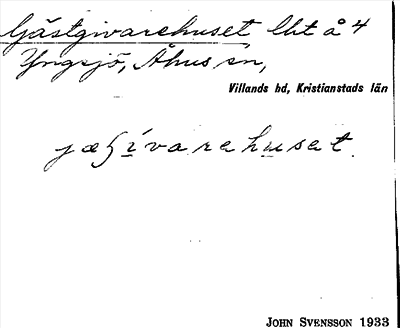 Gästgivarehuset lht å 4
Yngsjö, Åhus sn,
Villands hd, Kristianstads län
JOHN SVENSSON 1933